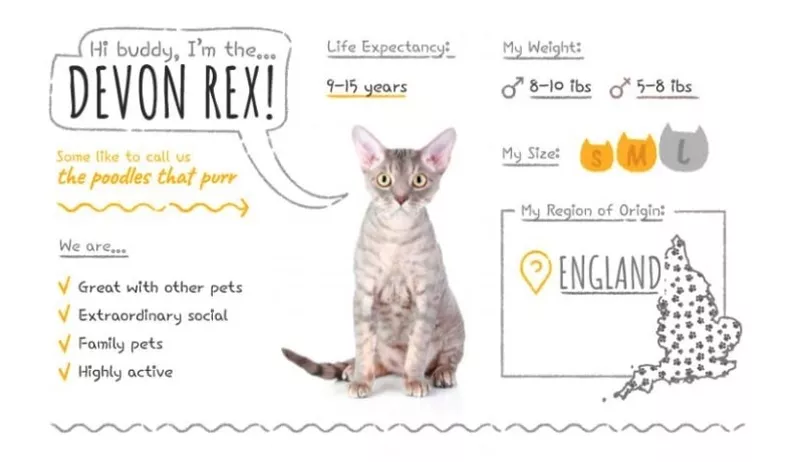 Hi buddy, I'm the...
DEVON REX!
Some like to call us
the poodles that purr
We are...
Great with other pets
Extraordinary social
Family pets
Highly active
Life Expectancy:
9-15 years
My Weight:
♂ 8-10 lbs ♂ 5-8 lbs
My Size:
S M L
My Region of Origin:
ENGLAND